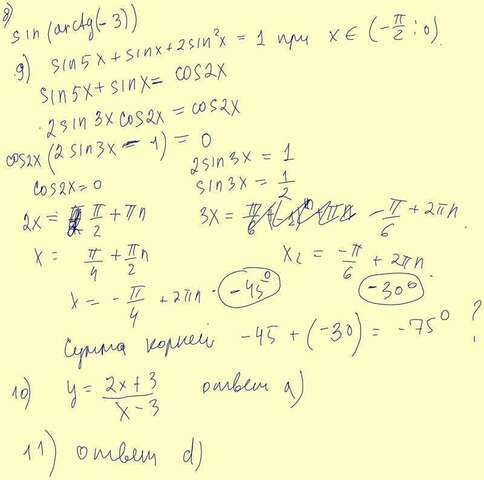 8) sin(arctg(-3)
9) sin5x + sinx + 2sin²x = 1 при x ∈ (-π/2 ; 0).
sin5x + sinx = cos2x
2sin3x cos2x = cos2x
cos2x(2sin3x - 1) = 0
cos2x = 0 2sin3x = 1
sin3x = 1/2
2x = π/2 + πn 3x = -π/6 + 2πn.
x = π/4 + πn/2 x₂ = -π/6 + 2πn.
x = -π/4 + 2πn. -45° -30°
Сумма корней -45 + (-30) = -75° ?
10) y = (2x + 3)/(x - 3) ответ a)
11) ответ d)